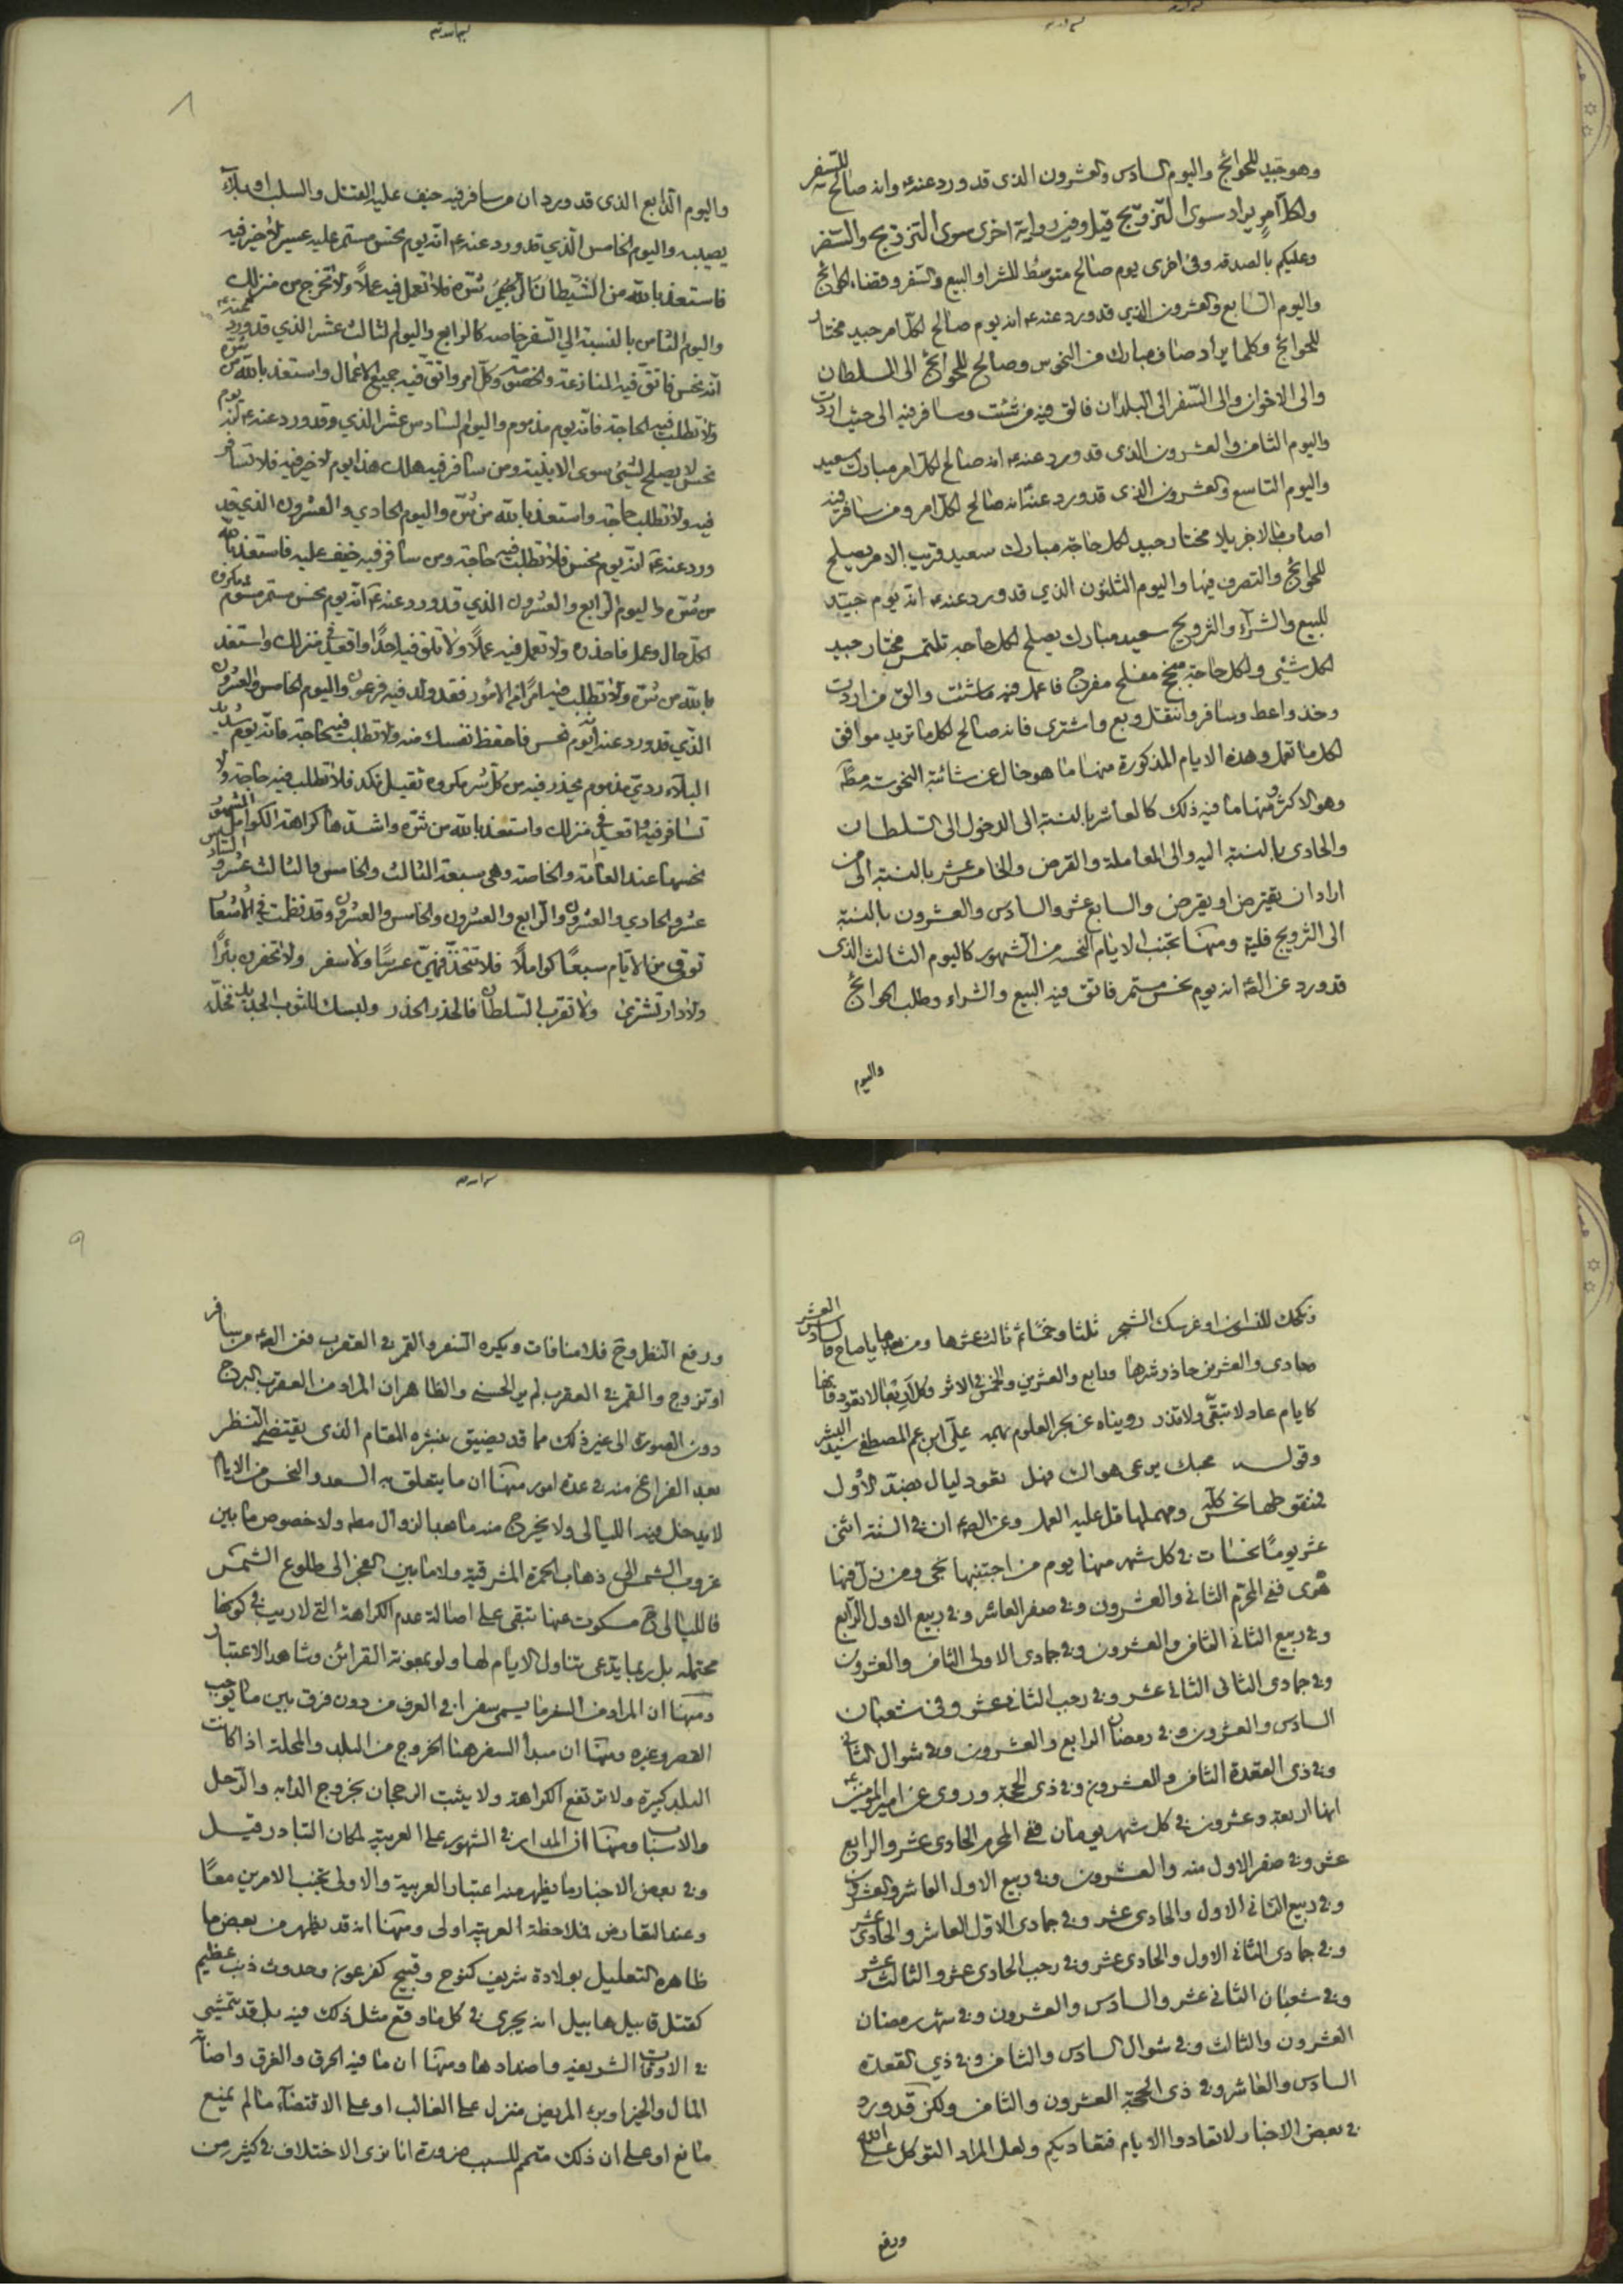 وهو جيد للحوائج واليوم السادس والعشرون الذى قد ورد عنه ع وانه صالح للسفر
ولكل امر يراد سوى التزويج قيل وفى رواية اخرى سوى التزويج والسفر
وعليكم بالصدقه وفى اخرى يوم صالح متوسط للشرا والبيع والسفر وقضاء الحوائج
واليوم السابع والعشرون الذي قد ورد عنه ع انه يوم صالح لكل امر جيد مختار
للحوائج وكلما يراد صاف مبارك من النحوس وصالح للحوائج الى السلطان
والى الاخوان والى السفر الى البلدان فالق فيه من شئت وسافر فيه الى حيث اردت
واليوم الثامن والعشرون الذى قد ورد عنه ع انه صالح لكل امر مبارك سعيد
واليوم التاسع والعشرون الذى قد ورد عنه انه صالح لكل امر ومن سافر فيه
اصاب مالا جزيلا مختار جيد لكل حاجة مبارك سعيد قريب الامر يصلح
للحوائج والتصرف فيها واليوم الثلثون الذي قد ورد عنه ع انه يوم جيد
للبيع والشرآء والتزويج سعيد مبارك يصلح لكل حاجة تلتمس مختار جيد
لكل شئى ولكل حاجة منجح مفلح مفرح فاعمل فيه ما شئت والق من اردت
وخذ واعط وسافر وانتقل وبع واشترى فانه صالح لكل ما تريد موافق
لكل ما تعمل وهذه الايام المذكورة منها ما هو خال عن شائبة النحوسة مطآ
وهو الاكثر ومنها ما فيه ذلك كالعاشر بالنسبة الى الدخول الى السلطان
والحادى بالنسبة اليه والى المعاملة والقرض والخامس عشر بالنسبة الى من
اراد ان يقترض او يقرض والسابع عشر والسادس والعشرون بالنسبة
الى التزويج فليه ومنها تجنب الايام النحسه من الشهور كاليوم الثالث الذى
قد ورد عن الصه انه يوم نحس مستمر فاتق فيه البيع والشراء وطلب الحوائج
واليوم
٨
واليوم الرابع الذى قد ورد ان من سافر فيه خيف عليه القتل والسلب او بلآء
يصيبه واليوم الخامس الذي قد ورد عنه ع انه يوم نحس مستمر عليه عسير لا خير فيه
فاستعذ بالله من الشيطان الرجيم شره فلا تعمل فيه عملا ولا تخرج من منزلك
واليوم الثامن بالنسبة الى السفر خاصه كالرابع واليوم الثالث عشر الذي قد ورد عنه ع
انه نحس فاتق فيه المنازعة والخصومة وكل امر واتق فيه جميع الاعمال واستعذ بالله من شره
ولا تطلب فيه الحاجة فانه يوم مذموم واليوم السادس عشر الذي وقد ورد عنه ع انه يوم
نحس لا يصلح لشئ سوى الابنية ومن سافر فيه هلك هذا يوم لا خير فيه فلا تسافر
فيه ولا تطلب حاجة واستعذ بالله من شره واليوم الحادي والعشرون الذي قد
ورد عنه ع انه يوم نحس فلا تطلب فيه حاجة ومن سافر فيه خيف عليه فاستعذ بالله
من شره واليوم الرابع والعشرون الذي قد ورد عنه ع انه يوم نحس مستمر مشوم مكروه
لكل حال وعمل فاحذره ولا تعمل فيه عملا ولا تلق فيه احدا واقعد في منزلك واستعذ
بالله من شره ولا تطلب فيه امرا من الامور فقد ولد فيه فرعون واليوم الخامس والعشرون
الذي قد ورد عنه انه يوم نحس فاحفظ نفسك منه ولا تطلب فيه حاجة فانه يوم شديد
البلآء ردي مذموم يحذر فيه من كل شر مكروه ثقيل نكد فلا تطلب فيه حاجة ولا
تسافر فيه واقعد في منزلك واستعذ بالله من شره واشدها كراهة الكوامل المشهور
نحسها عند العامة والخاصة وهي سبعة الثالث والخامس والثالث عشر والسادس
عشر والحادي والعشرون والرابع والعشرون والخامس والعشرون وقد نظمت في الاشعار
توقى من الايام سبعا كواملا فلا تتخذ فيهن عرسا ولا سفر ولا تحفرن بئرا
ولا دار تشترى ولا تقرب السلطان فالحذر الحذر ولبسك للثوب الجديد فخله
ونكحك للنسوان او غرسك الشجر ثلثا وخمسا ثم ثالث عشرها ومن بعدها يا صاح فالسادس العشر
وحادى والعشرين حاذر شرها ورابع والعشرين والخمس فى الاثر وكل اربعا لا تعود فانها
كايام عاد لا تبقى ولا تذر رويناه عن بحر العلوم بهمة على ابن عم المصطفى سيد البشر
وقوله محبك يرعى هواك فهل تعود ليال بضد الاول
فمنقوطها نحس كله ومهملها قل عليه العمل وعن الصه ان فى السنة اثنى
عشر يوما نحسات فى كل شهر منها يوم من اجتنبها نجى ومن نزل فيها
هوى ففى المحرم الثانى والعشرون وفى صفر العاشر وفى ربيع الاول الرابع
وفى ربيع الثانى الثامن والعشرون وفى جمادى الاولى الثامن والعشرون
وفى جمادى الثانى الثانى عشر وفى رجب الثانى عشر وفى شعبان
السادس والعشرون وفى رمضان الرابع والعشرون وفى شوال الثانى
وفى ذى القعدة الثامن والعشرون وفى ذى الحجة وروى عن امير المؤمنين ع
انها اربعة وعشرون فى كل شهر يومان ففى المحرم الحادى عشر والرابع
عشر وفى صفر الاول منه والعشرون وفى ربيع الاول العاشر والعشرون
وفى ربيع الثانى الاول والحادى عشر وفى جمادى الاول العاشر والحادى عشر
وفى جمادى الثانى الاول والحادى عشر وفى رجب الحادى عشر والثالث عشر
وفى شعبان الثانى عشر والسادس والعشرون وفى شهر رمضان
العشرون والثالث وفى شوال السادس والثامن وفى ذي القعدة
السادس والعاشر وفى ذى الحجة العشرون والثامن ولكن قد ورد
فى بعض الاخبار لا تعادوا الايام فتعاديكم ولعل المراد التوكل على الله
ورفع
٩
ورفع التطير وح فلا منافات ويكره السفر والقمر فى العقرب فعن الصه من سافر
او تزوج والقمر فى العقرب لم ير الحسنى والظاهر ان المراد من العقرب البرج
دون الصورة الى غير ذلك مما قد يضيق بنشره المقام الذى يقتضى النظر
بعد الفراغ منه فى عدة امور منها ان ما يتعلق به السعد والنحس من الايام
لا يدخل فيه الليالى ولا يخرج منه ما بعد الزوال مطه ولا خصوص ما بين
غروب الشمس الى ذهاب الحمرة المشرقية ولا ما بين الفجر الى طلوع الشمس
فالليالى ح مسكوت عنها تبقى على اصالة عدم الكراهة التى لا ريب فى كونها
محتمله بل ربما يدعى تناول الايام لها ولو بمعونة القرائن وشاهد الاعتبار
ومنها ان المراد من السفر ما يسمى سفرا فى العرف من دون فرق بين ما يوجب
القصر وغيره ومنها ان مبدأ السفر هنا الخروج من البلد والمحلة اذا كانت
البلد كبيرة ولا ترتفع الكراهة ولا يثبت الرجحان بخروج الدابه والرحل
والاسباب ومنها ان المدار فى الشهور على العربية لمكان التبادر قيل
وفى بعض الاخبار ما يظهر منه اعتبار العربية والاولى تجنب الامرين معا
وعند التعارض فملاحظة العربية اولى ومنها انه قد يظهر من بعض ما
ظاهره التعليل بولادة شريف كنوح وقبيح كفرعون وحدوث ذنب عظيم
كقتل قابيل هابيل انه يجرى فى كل ما وقع مثل ذلك فيه بل قد يتمشى
فى الاوقات الشريفه واضدادها ومنها ان ما فيه الحرق والغرق واصابة
المال والخير او برء المريض منزل على الغالب او على الاقتضآء ما لم يمنع
مانع او على ان ذلك متمم للسبب ضرورة انا نرى الاختلاف فى كثير من